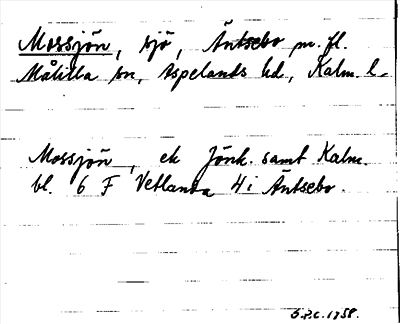 Mossjön, sjö, Äntsebo m. fl.
Målilla sn, Aspelands hd, Kalm. l.
Mossjön, ek Jönk. samt Kalm.
bl. 6 F Vetlanda 4 i Äntsebo.
1958.